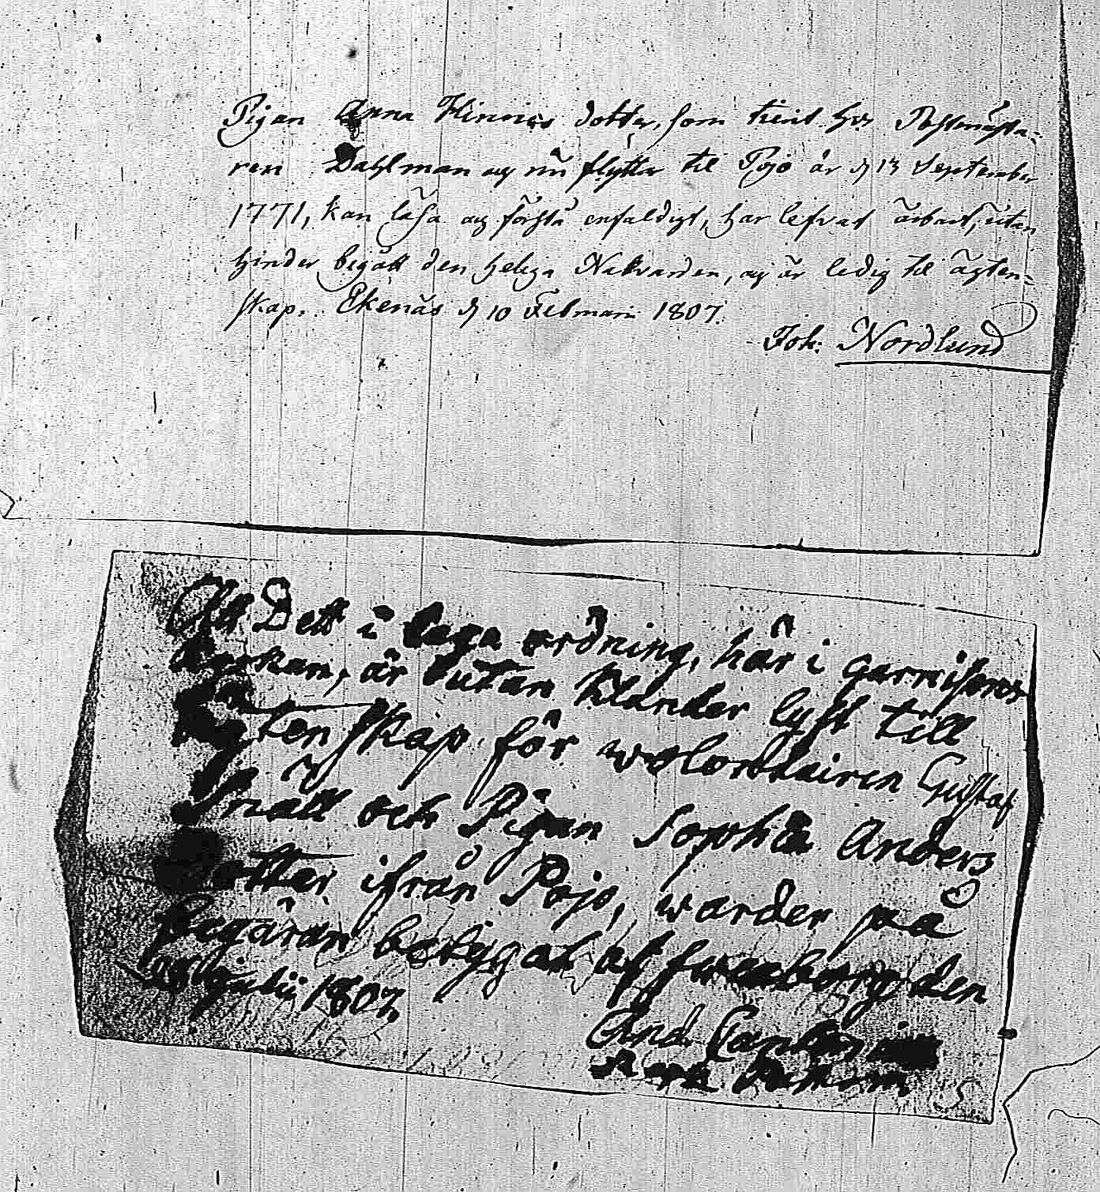 Pigan Anna Hinrics dotter, som tient hos Postmästa-
ren Dahlman og nu flyttar til Pojo är d 13 September
1771, kan läsa og förstå enfaldigt, har lefvat ärbart, utan
hinder begått den heliga Natvarden, og är ledig til ägten-
skap. Ekenäs d 10 Februarii 1807.
Joh: Nordlund
Att Dett i laga ordning, här i garnisons
kyrkan, är utan klander lyst till
Ägtenskap för wolontairen Gustaf
Snäll och Pigan Sophia Anders
dotter ifrån Pojo, warder på
begäran betygat af Sweaborg den
Julii 1807
And.